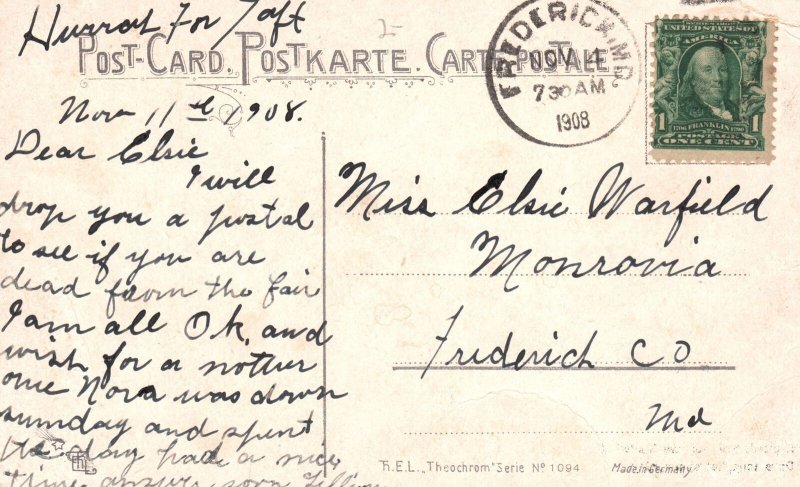 Hurrah For Taft
POST-CARD. POSTKARTE. CARTE POSTALE.
FREDERICK, MD.
NOV 4
730 AM
1908
UNITED STATES OF
AMERICA
1 FRANKLIN 1
POSTAGE
ONE CENT
Nov 11th 1908.
Dear Elsie
I will
drop you a postal
to see if you are
dead from the fair
I am all Ok, and
wish for a nother
one Nora was down
sunday and spent
the day had a nice
time answer soon
Miss Elsie Warfield
Monrovia
Frederich Co
Md
R.E.L. „Theochrom" Serie Nº 1094
Made in Germany